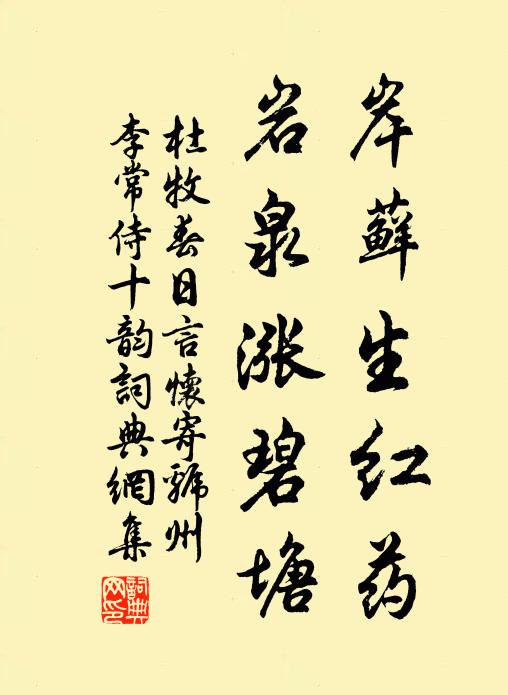 岸藓生红药
岩泉涨碧塘
杜牧春日言懷寄虢州
李常侍十韵詞典網集